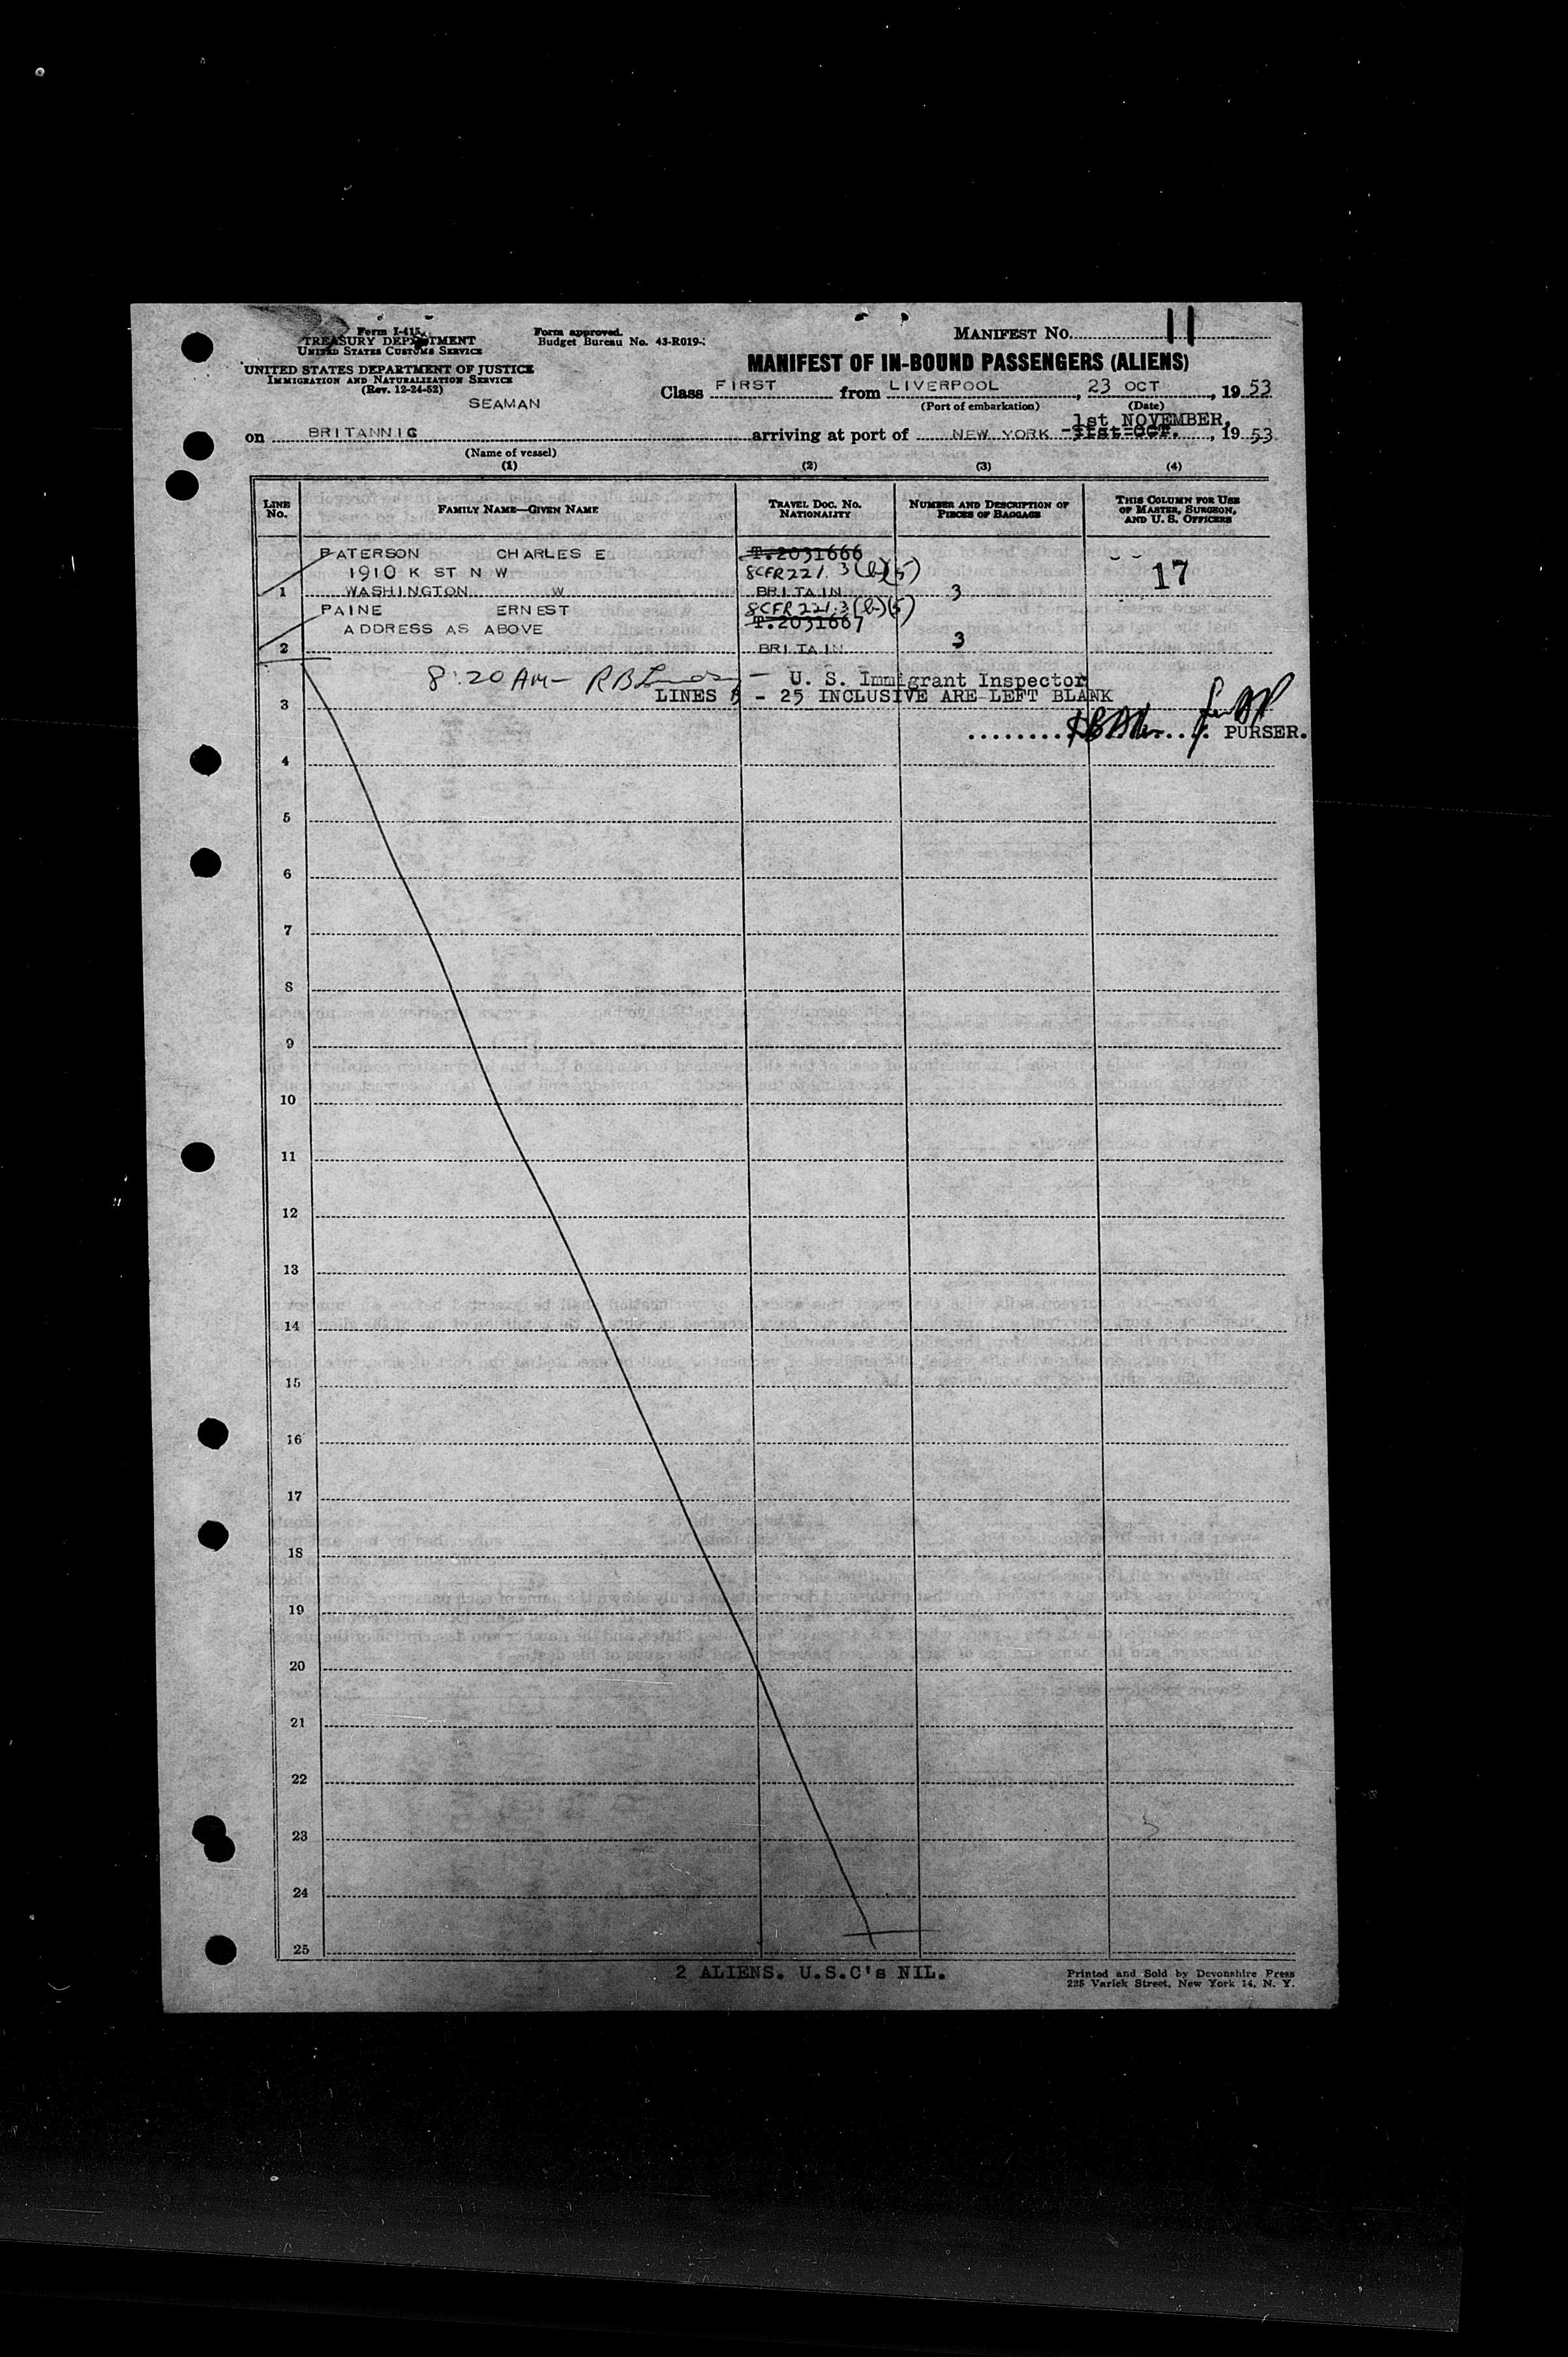 Form I-415
TREASURY DEPARTMENT
UNITED STATES CUSTOMS SERVICE
UNITED STATES DEPARTMENT OF JUSTICE
IMMIGRATION AND NATURALIZATION SERVICE
(Rev. 12-24-52)
SEAMAN
Form approved.
Budget Bureau No. 43-R019-
MANIFEST NO. 11
MANIFEST OF IN-BOUND PASSENGERS (ALIENS)
Class FIRST from LIVERPOOL, 23 OCT, 1953
(Port of embarkation) (Date)
1st NOVEMBER,
on BRITANNIC arriving at port of NEW YORK 31st OCT., 1953
(Name of vessel)
(1) (2) (3) (4)
LINE NO. FAMILY NAME—GIVEN NAME TRAVEL DOC. NO. NATIONALITY NUMBER AND DESCRIPTION OF PIECES OF BAGGAGE THIS COLUMN FOR USE OF MASTER, SURGEON, AND U. S. OFFICERS
PATERSON CHARLES E T.2031666
1910 K ST N W 8CFR221.3(b)(5) 17
1 WASHINGTON W BRITAIN 3
PAINE ERNEST 8CFR221.3(b)(5)
ADDRESS AS ABOVE T.2031667
2 BRITAIN 3
8:20 AM — R B — U. S. Immigrant Inspector
LINES 3 - 25 INCLUSIVE ARE LEFT BLANK
3
PURSER.
4
5
6
7
8
9
10
11
12
13
14
15
16
17
18
19
20
21
22
23
24
25
2 ALIENS. U.S.C's NIL.
Printed and Sold by Devonshire Press
225 Varick Street, New York 14, N. Y.